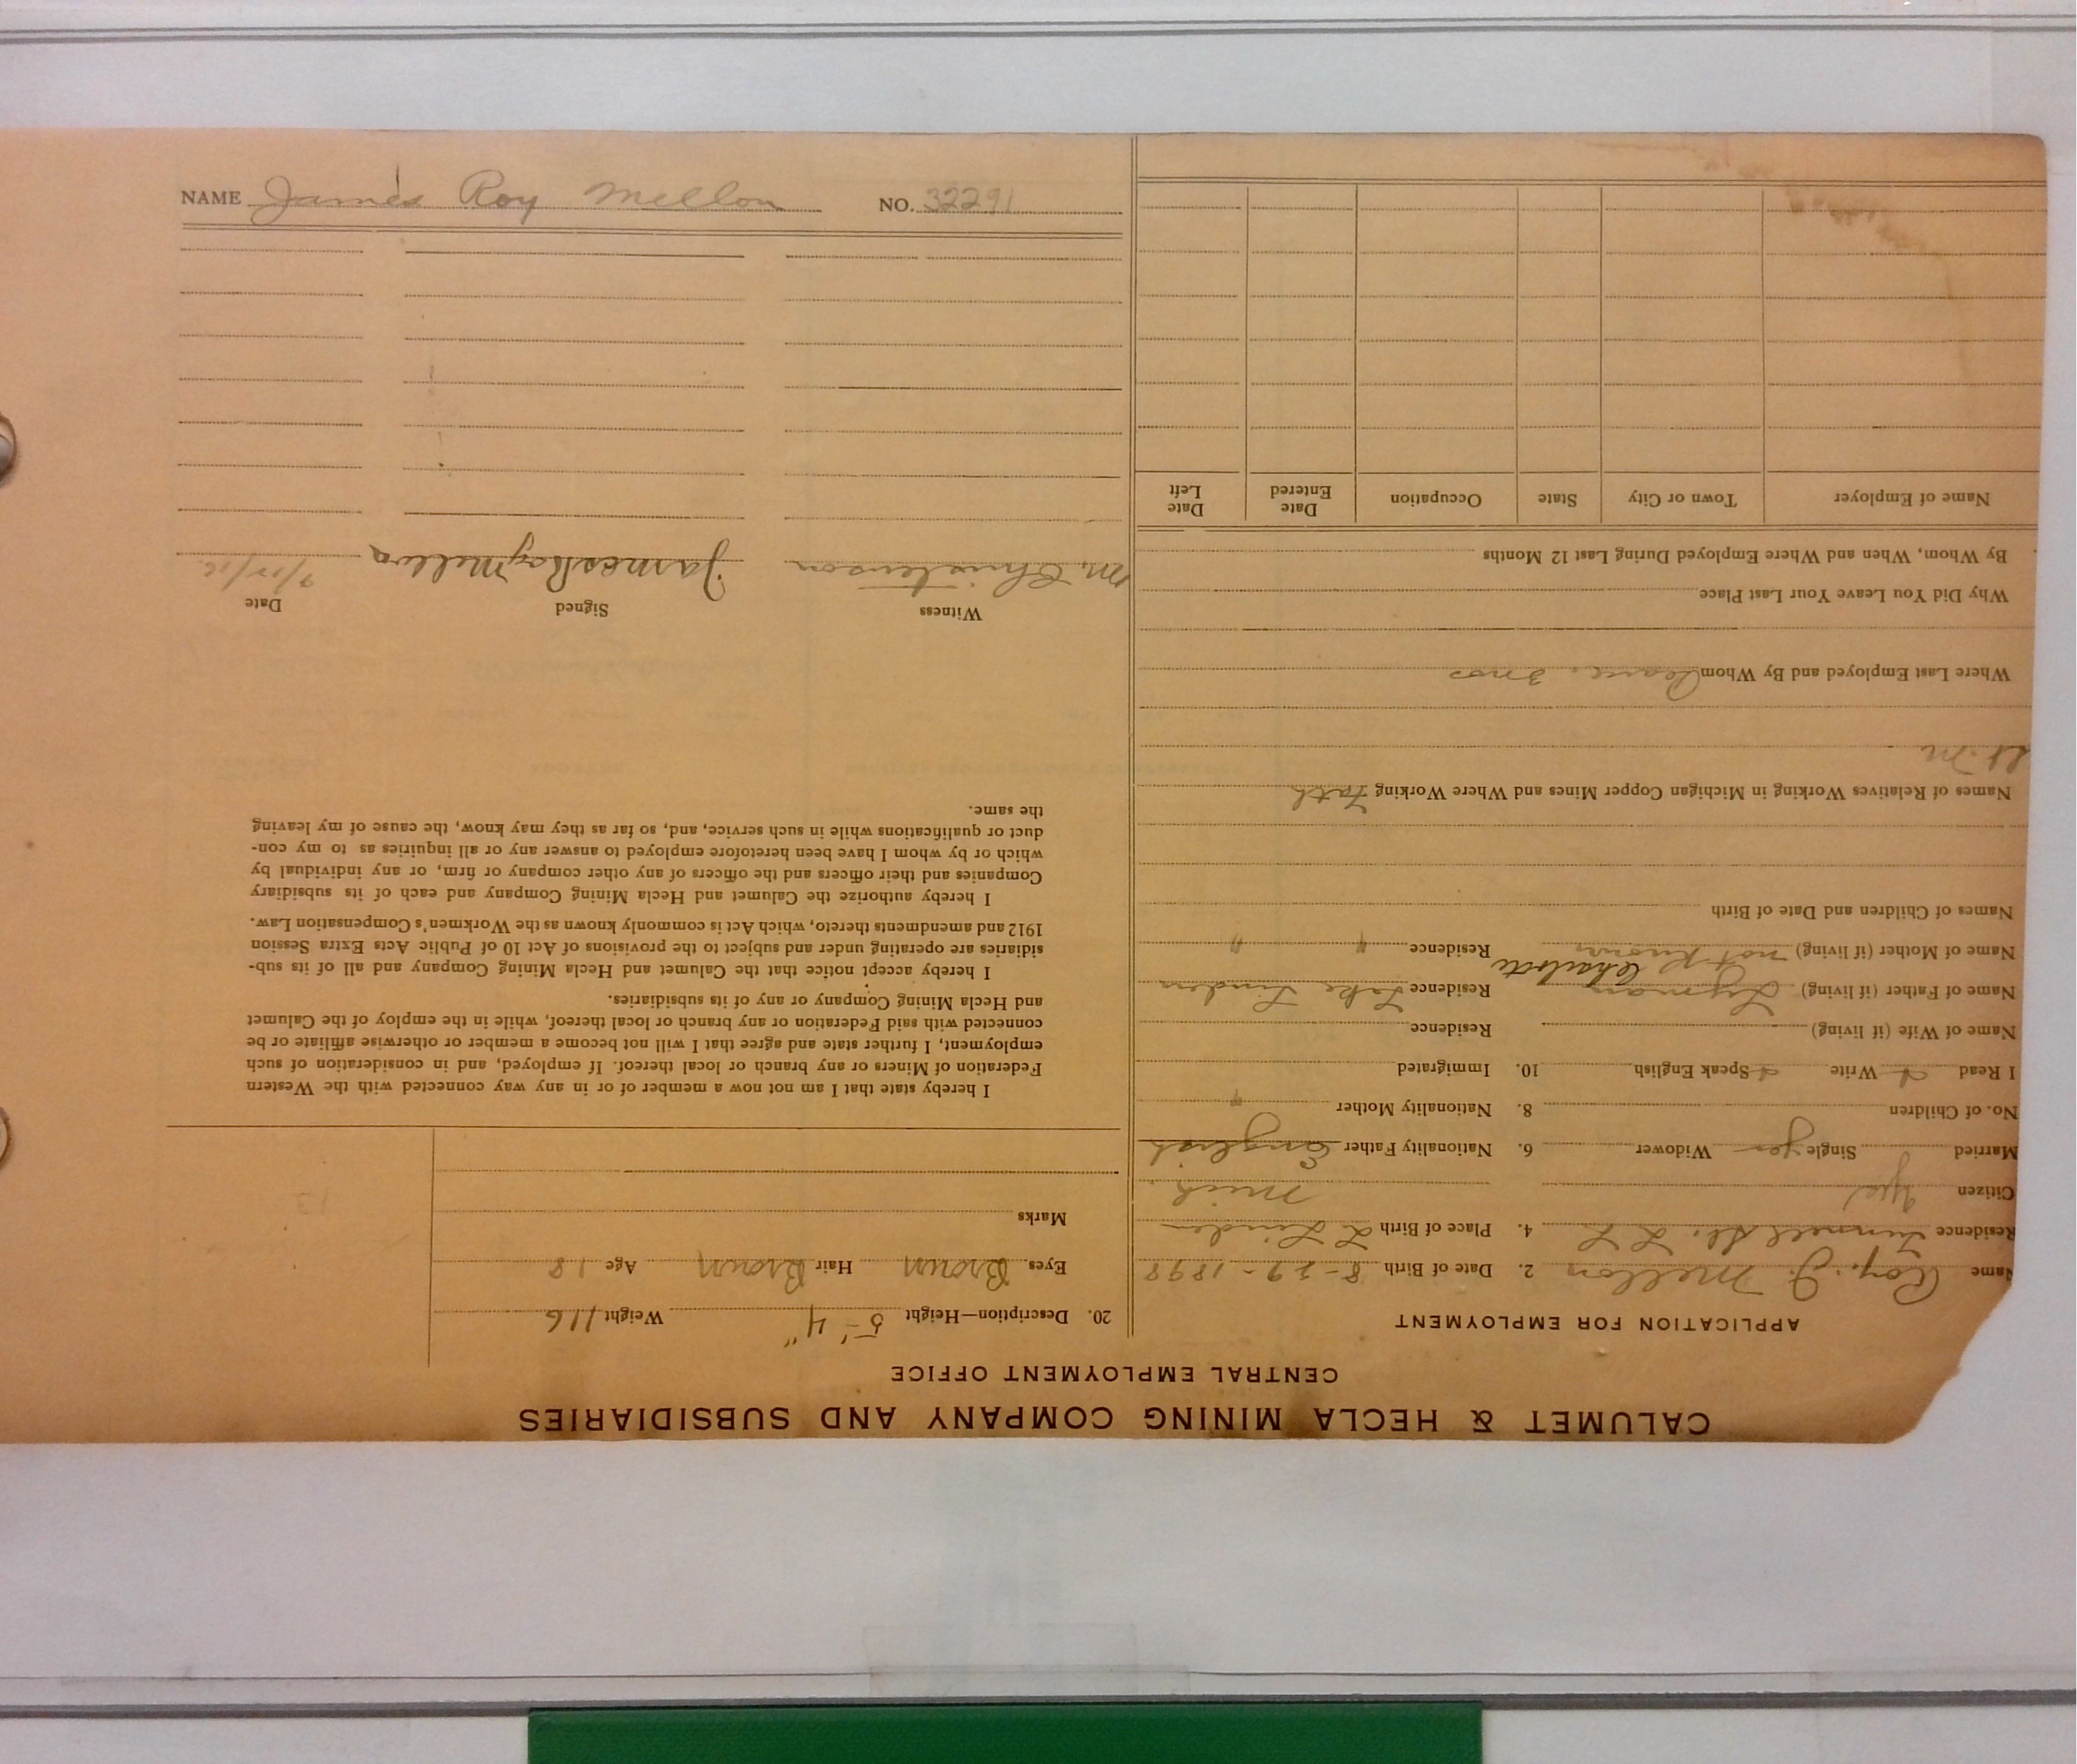 CALUMET & HECLA MINING COMPANY AND SUBSIDIARIES
CENTRAL EMPLOYMENT OFFICE
APPLICATION FOR EMPLOYMENT
Name Roy. J. Mellon 2. Date of Birth 8-29-1898
Residence Tunnell St. L L 4. Place of Birth L Linden
Citizen Yes Mich
Married Single yes Widower 6. Nationality Father English
No. of Children 8. Nationality Mother "
I Read Write Speak English 10. Immigrated
Name of Wife (if living) Residence
Name of Father (if living) Lyman Residence Lake Linden
Charlotte
Name of Mother (if living) not known Residence " "
Names of Children and Date of Birth
Names of Relatives Working in Michigan Copper Mines and Where Working Fath
St. M
Where Last Employed and By Whom 3 mos
Why Did You Leave Your Last Place
By Whom, When and Where Employed During Last 12 Months
Name of Employer Town or City State Occupation Date Entered Date Left
20. Description—Height 5'-4" Weight 116
Eyes Brown Hair Brown Age 18
Marks
13
I hereby state that I am not now a member of or in any way connected with the Western
Federation of Miners or any branch or local thereof. If employed, and in consideration of such
employment, I further state and agree that I will not become a member or otherwise affiliate or be
connected with said Federation or any branch or local thereof, while in the employ of the Calumet
and Hecla Mining Company or any of its subsidiaries.
I hereby accept notice that the Calumet and Hecla Mining Company and all of its sub-
sidiaries are operating under and subject to the provisions of Act 10 of Public Acts Extra Session
1912 and amendments thereto, which Act is commonly known as the Workmen's Compensation Law.
I hereby authorize the Calumet and Hecla Mining Company and each of its subsidiary
Companies and their officers and the officers of any other company or firm, or any individual by
which or by whom I have been heretofore employed to answer any or all inquiries as to my con-
duct or qualifications while in such service, and, so far as they may know, the cause of my leaving
the same.
Witness Signed Date
M. Christenson James Roy Mellon
NAME James Roy Mellon NO. 32291